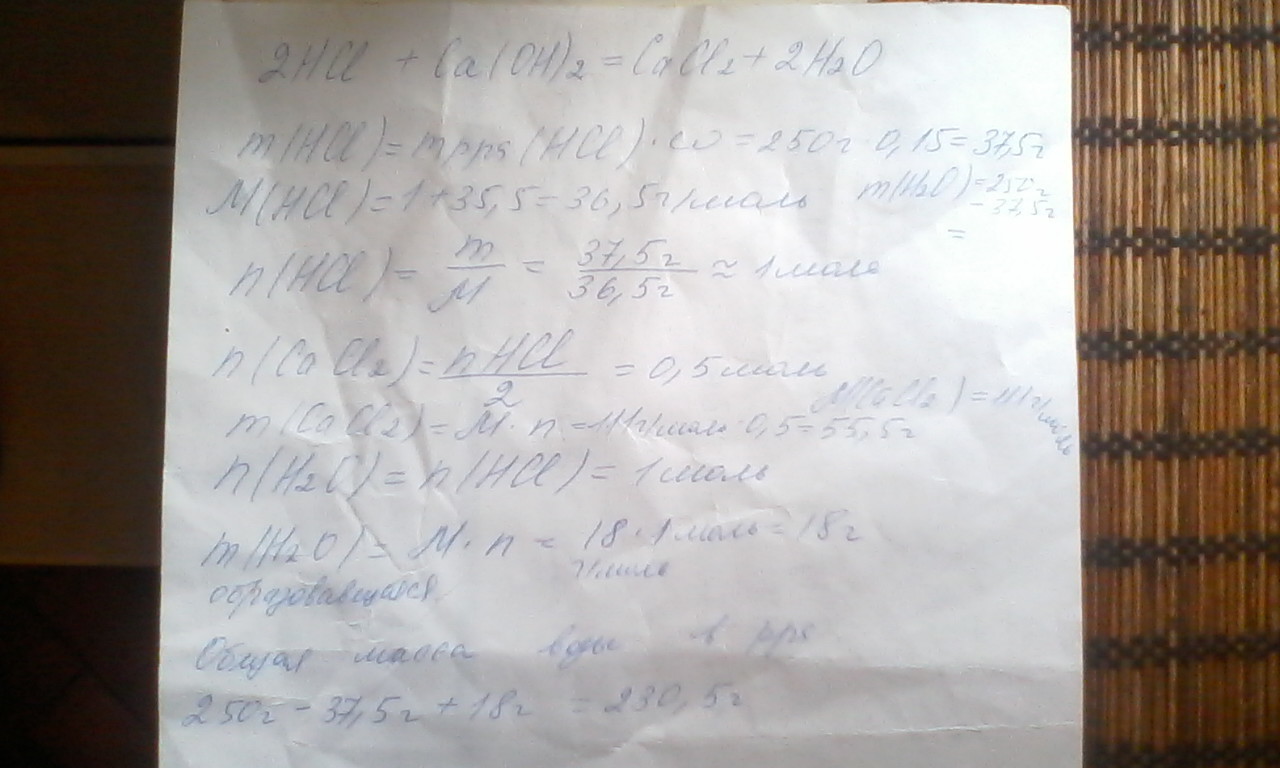 2HCl + Ca(OH)2 = CaCl2 + 2H2O
m(HCl) = mppa (HCl) · ω = 250г · 0,15 = 37,5г
M(HCl) = 1 + 35,5 = 36,5г/моль
m(H2O) = 250г
- 37,5г
=
n(HCl) = m/M = 37,5г/36,5г ≈ 1моль
n(CaCl2) = nHCl/2 = 0,5моль
M(CaCl2) = 111г/моль
m(CaCl2) = M · n = 111г/моль · 0,5 = 55,5г
n(H2O) = n(HCl) = 1моль
m(H2O) = M · n = 18 · 1моль = 18г
г/моль
образовавшаяся
Общая масса воды в рра
250г - 37,5г + 18г = 230,5г